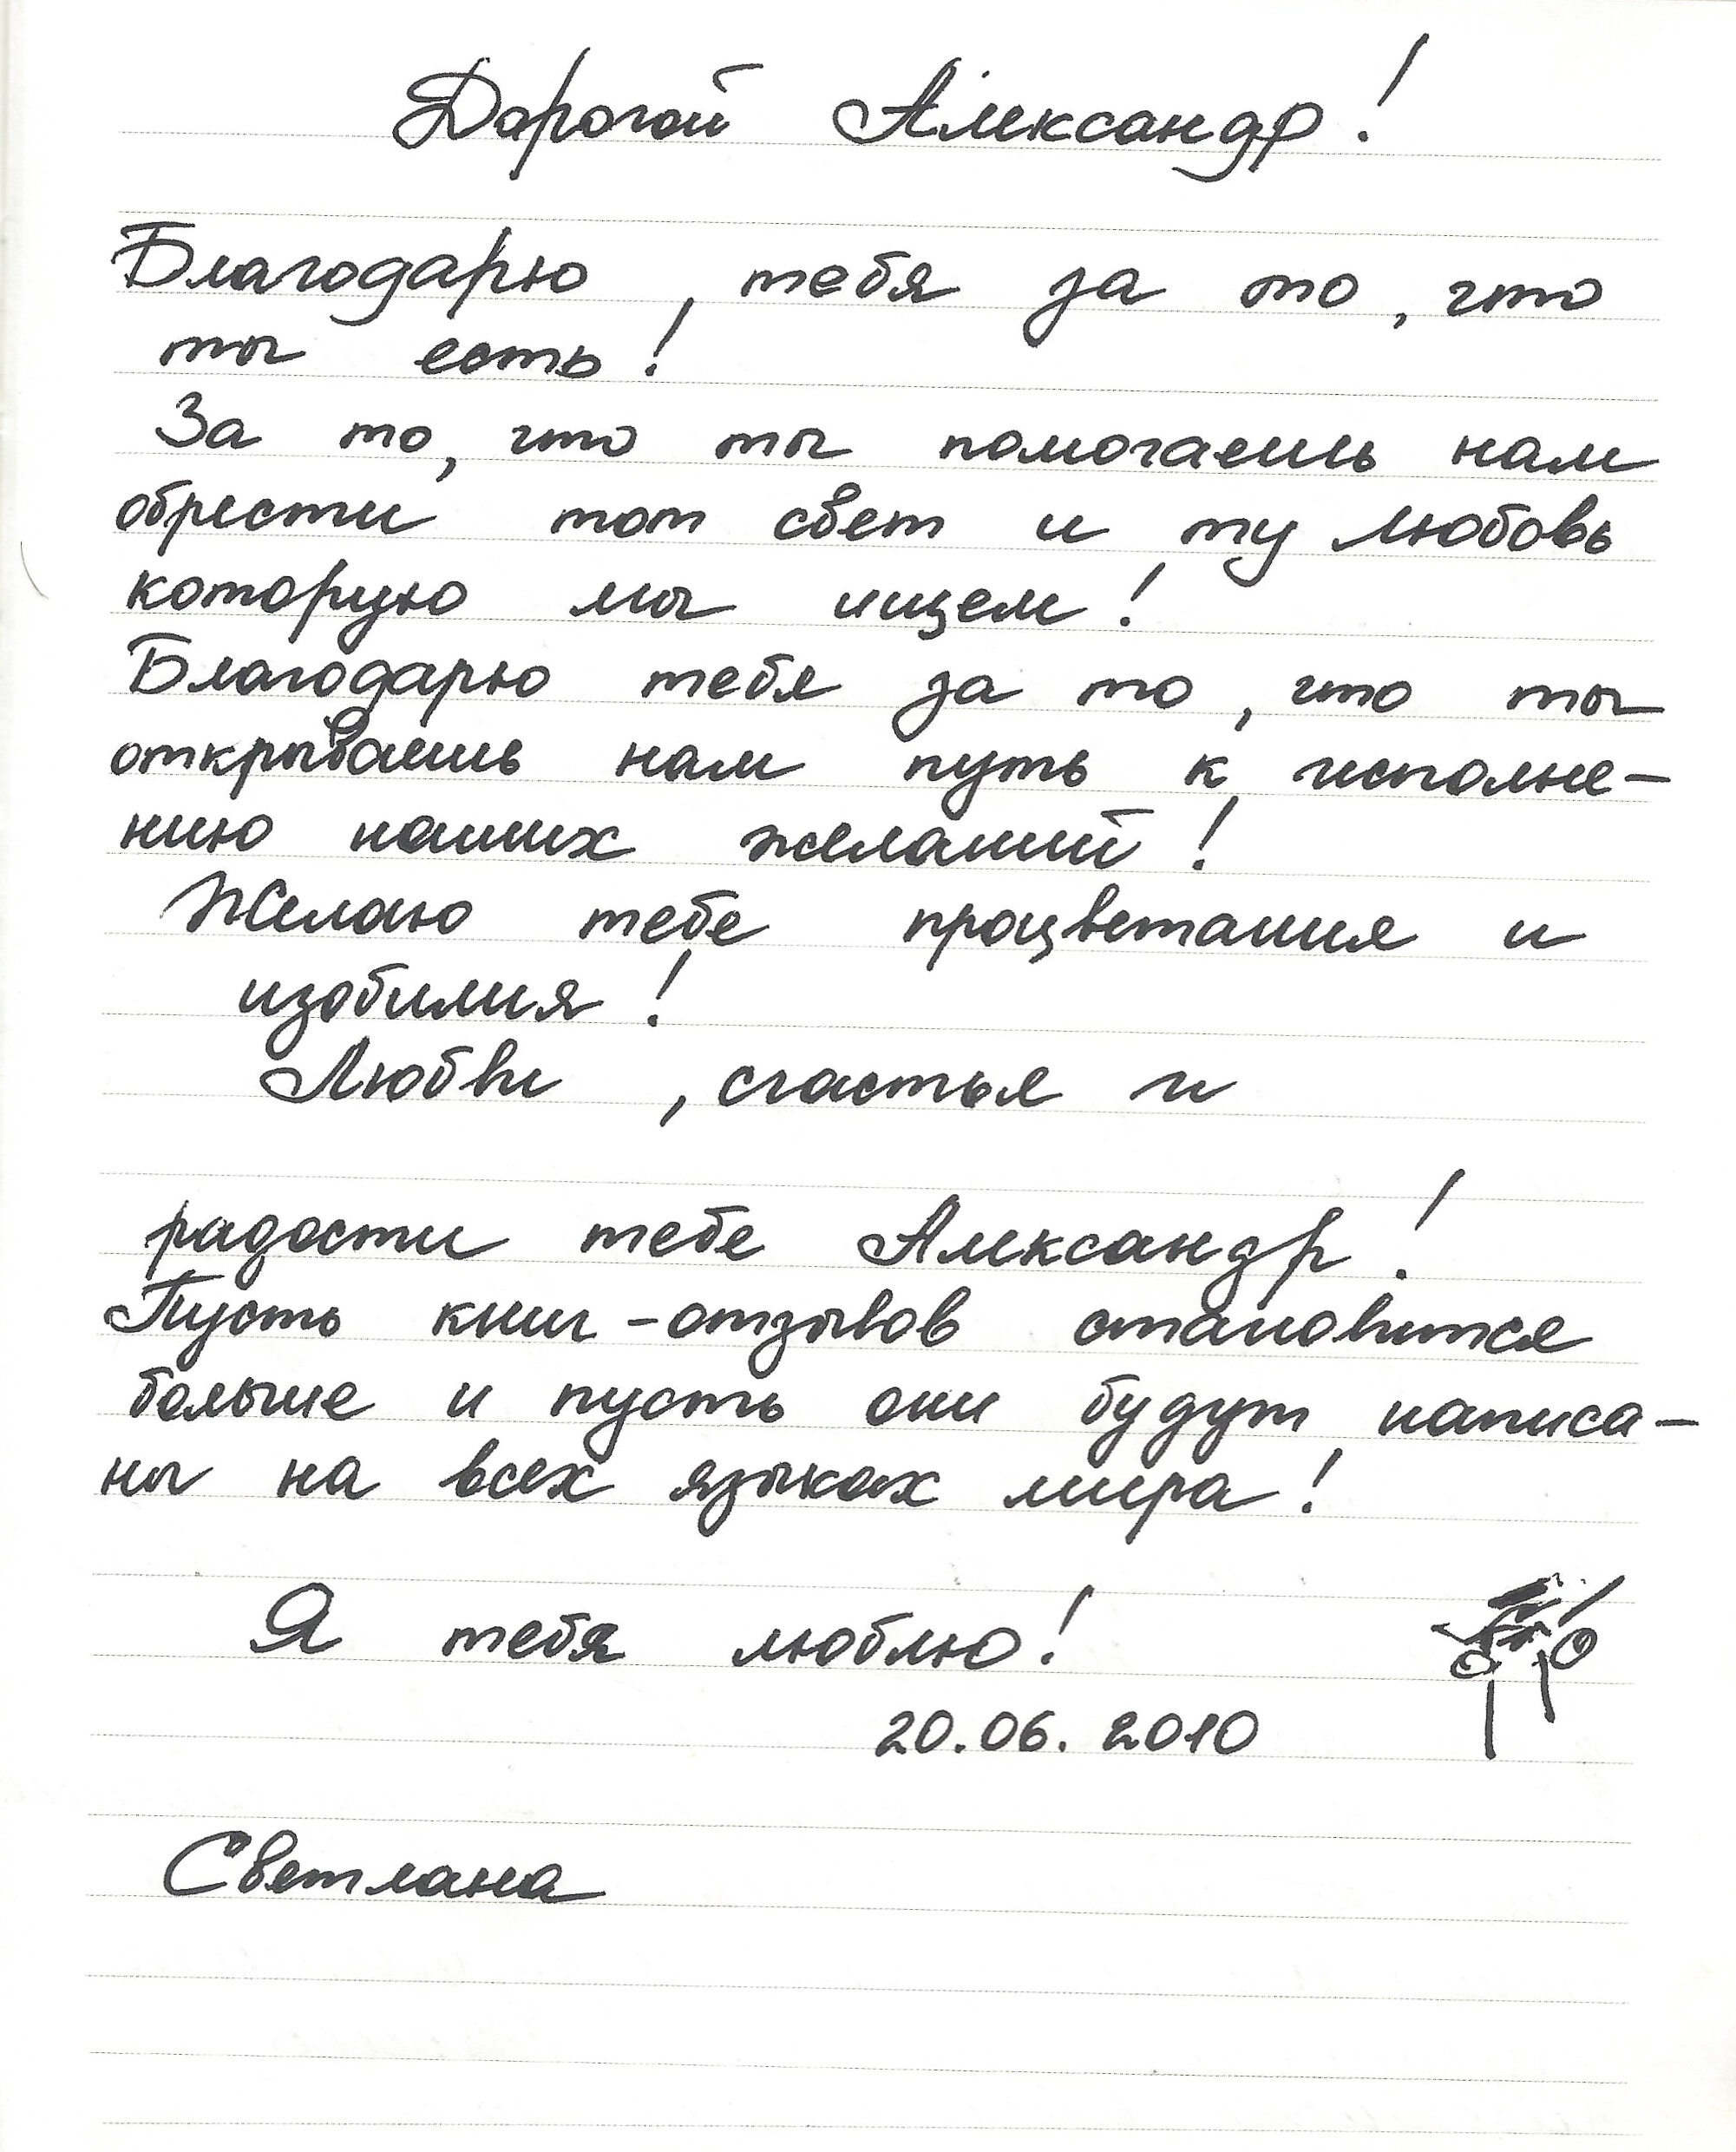 Дорогой Александр!
Благодарю, тебя за то, что
ты есть!
За то, что ты помогаешь нам
обрести тот свет и ту любовь
которую мы ищем!
Благодарю тебя за то, что ты
открываешь нам путь к исполне-
нию наших желаний!
Желаю тебе процветания и
изобилия!
Любви, счастья и
радости тебе Александр!
Пусть книг-отзывов становится
больше и пусть они будут написа-
ны на всех языках мира!
Я тебя люблю!
20.06.2010
Светлана